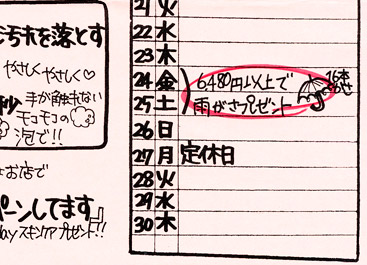 汚れを落とす
やさしくやさしく♡
秒 手が触れない
モコモコの
泡で!!
お店で
ーンしてます』
スキンケアプレゼント!!
21 火
22 水
23 木
24 金 6,480円以上で
25 土 雨がさプレゼント
26 日
27 月 定休日
28 火
29 水
30 木